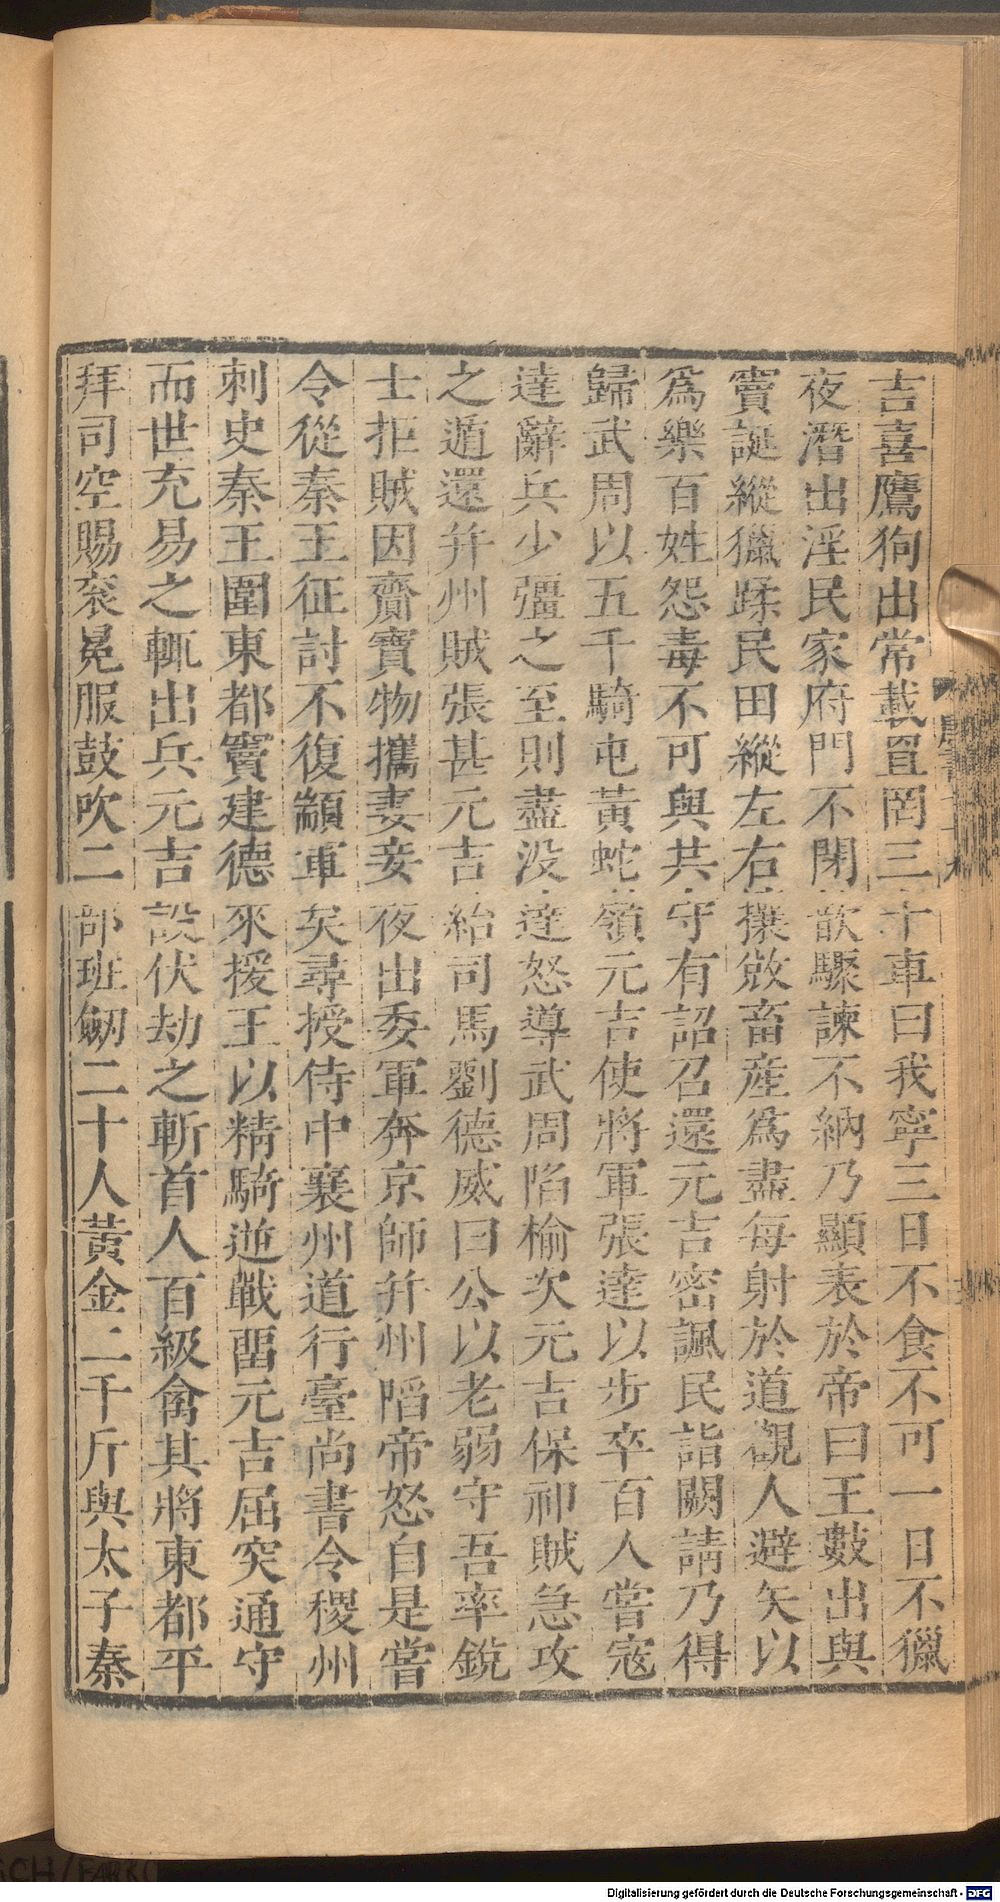 吉喜鷹狗出常載罝罔三十車曰我寧三日不食不可一日不獵
夜潛出淫民家府門不閉歆驟諫不納乃顯表於帝曰王數出與
竇誕縱獵蹂民田縱左右攘敓畜產爲盡每射於道觀人避矢以
爲樂百姓怨毒不可與共守有詔召還元吉密諷民詣闕請乃得
歸武周以五千騎屯黃蛇嶺元吉使將軍張達以步卒百人嘗寇
達辭兵少彊之至則盡没達怒導武周陷榆次元吉保祁賊急攻
之遁還幷州賊張甚元吉紿司馬劉德威曰公以老弱守吾率銳
士拒賊因齎寶物攜妻妾夜出委軍奔京師幷州陷帝怒自是嘗
令從秦王征討不復顓軍矣尋授侍中襄州道行臺尚書令稷州
刺史秦王圍東都竇建德來援王以精騎迎戰留元吉屈突通守
而世充易之輒出兵元吉設伏劫之斬首人百級禽其將東都平
拜司空賜衮冕服鼓吹二部班劒二十人黃金二千斤與太子秦
Digitalisierung gefördert durch die Deutsche Forschungsgemeinschaft - DFG